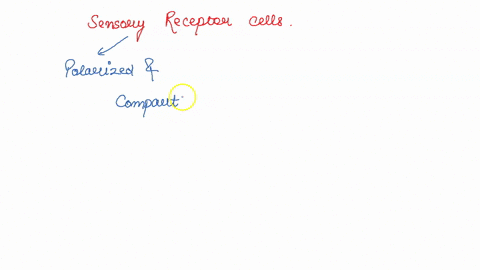 Sensory Receptor cells.
Polarized &
Compart